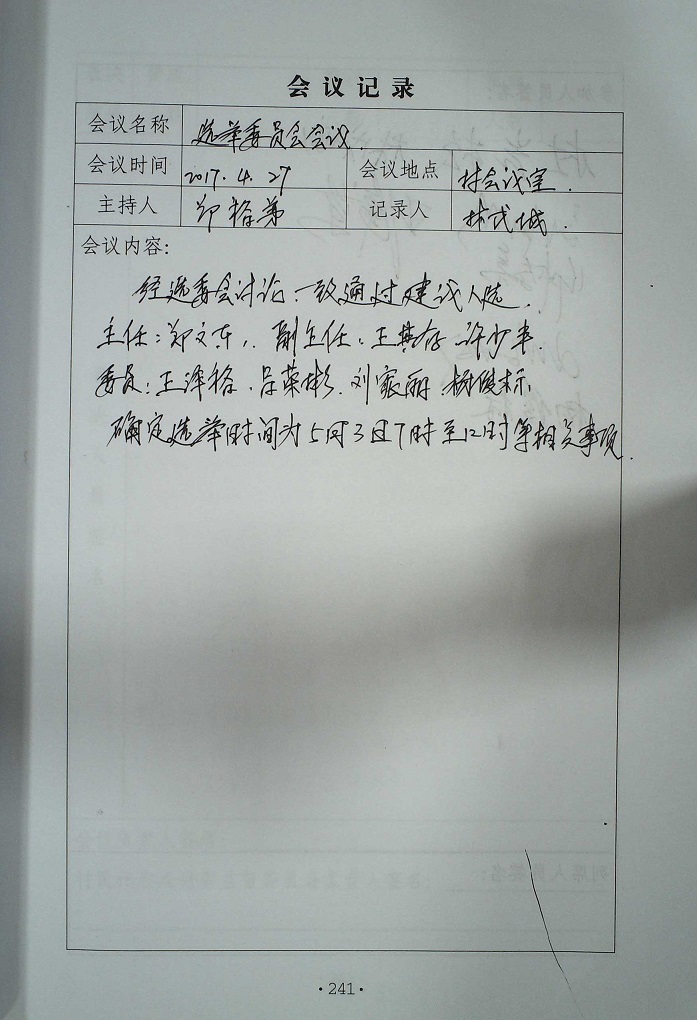 会议记录
会议名称 选举委员会会议.
会议时间 2017.4.27 会议地点 村会议室.
主持人 郑 记录人 林
会议内容:
经选委会讨论、一致通过建议人选.
主任:郑文东, 副主任:王其存 许少丰.
委员:王泽 吕荣彬.刘家丽.杨俊标
确定选举时间为5月3日7时至12时等相关事项.
·241·